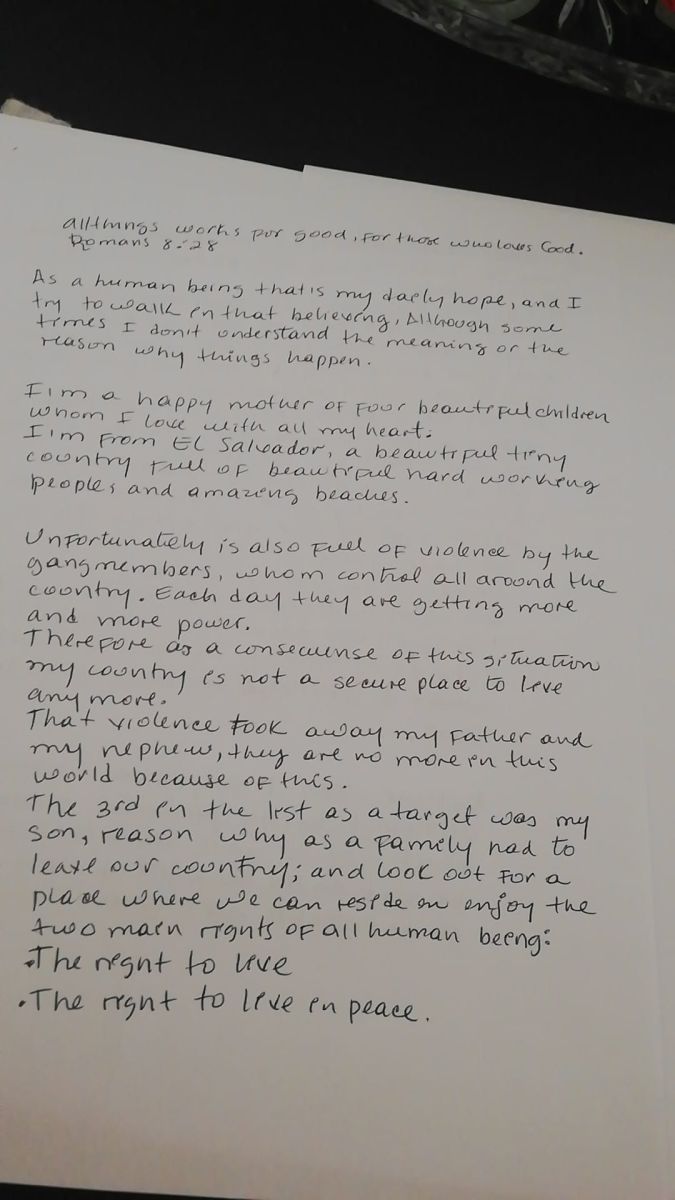 all things works por good, for those who loves Good.
Romans 8:28
As a human being that is my daely hope, and I
try to walk en that believeng, Although some
times I don't understand the meaning or the
reason why things happen.
I'm a happy mother of four beautiful children
whom I love with all my heart.
I'm from EL Salvador, a beautiful tiny
country full of beautiful hard workeng
peoples and amazeng beaches.
Unfortunately is also fuel of violence by the
gangmembers, whom control all around the
coontry. Each day they are getting more
and more power.
Therefore as a consecuense of this situation
my country es not a secure place to leve
any more.
That violence took away my father and
my nephew, they are no more en this
world because of this.
The 3rd en the lest as a target was my
son, reason why as a family had to
leave our country; and look oot for a
place where we can reside en enjoy the
two maen rights of all human beeng:
•The reght to leve
•The right to leve en peace.